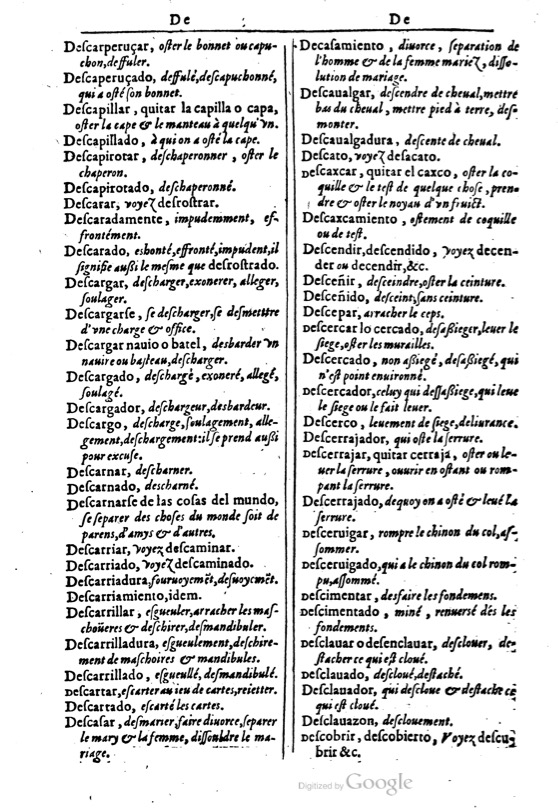 De
De
Deſcarperuçar, oſter le bonnet ou capu-
chon, deffuler.
Deſcaperuçado, deffulé, deſcapuchonné,
qui a oſté ſon bonnet.
Deſcapillar, quitar la capilla o capa,
oſter la cape & le manteau à quelqu'vn.
Deſcapillado, à qui on a oſté la cape.
Deſcapirotar, deſchaperonner, oſter le
chaperon.
Deſcapirotado, deſchaperonné.
Deſcarar, voyez deſroſtrar.
Deſcaradamente, impudemment, ef-
frontément.
Deſcarado, eshonté, effronté, impudent, il
ſignifie auſſi le meſme que deſroſtrado.
Deſcargar, deſcharger, exonerer, alleger,
ſoulager.
Deſcargarſe, ſe deſcharger, ſe deſmettre
d'vne charge & office.
Deſcargar nauio o batel, desbarder vn
nauire ou baſteau, deſcharger.
Deſcargado, deſchargé, exoneré, allegé,
ſoulagé.
Deſcargador, deſchargeur, desbardeur.
Deſcargo, deſcharge, ſoulagement, alle-
gement, deſchargement: il ſe prend auſſi
pour excuſe.
Deſcarnar, deſcharner.
Deſcarnado, deſcharné.
Deſcarnarſe de las coſas del mundo,
ſe ſeparer des choſes du monde ſoit de
parens, d'amys & d'autres.
Deſcarriar, voyez deſcaminar.
Deſcarriado, voyez deſcaminado.
Deſcarriadura, fouruoyemẽt, deſuoycmẽt.
Deſcarriamiento, idem.
Deſcarrillar, eſgueuler, arracher les maſ-
choüeres & deſchirer, deſmandibuler.
Deſcarrilladura, eſgueulement, deſchire-
ment de maſchoires & mandibules.
Deſcarrillado, eſgueullé, deſmandibulé.
Deſcartar, eſcarter au ieu de cartes, reietter.
Deſcartado, eſcarté les cartes.
Deſcaſar, deſmarier, faire diuorce, ſeparer
le mary & la femme, diſſouldre le ma-
riage.
Decaſamiento, diuorce, ſeparation de
l'homme & de la femme mariez, diſſo-
lution de mariage.
Deſcaualgar, deſcendre de cheual, mettre
bas du cheual, mettre pied à terre, deſ-
monter.
Deſcaualgadura, deſcente de cheual.
Deſcato, voyez deſacato.
Deſcaxcar, quitar el caxco, oſter la co-
quille & le teſt de quelque choſe, pren-
dre & oſter le noyau d'vn fruict.
Deſcaxcamiento, oſtement de coquille
ou de teſt.
Deſcendir, deſcendido, voyez decen-
der ou decendir, &c.
Deſceñir, deſceindre, oſter la ceinture.
Deſceñido, deſceint, ſans ceinture.
Deſcepar, arracher le ceps.
Deſcercar lo cercado, deſaſſieger, leuer le
ſiege, oſter les murailles.
Deſcercado, non aſſiegé, deſaſſiegé, qui
n'eſt point enuironné.
Deſcercador, celuy qui deſſaſſiege, qui leue
le ſiege ou le fait leuer.
Deſcerco, leuement de ſiege, deliurance.
Deſcerrajador, qui oſte la ſerrure.
Deſcerrajar, quitar cerraja, oſter ou le-
uer la ſerrure, ouurir en oſtant ou rom-
pant la ſerrure.
Deſcerrajado, dequoy on a oſté & leué la
ſerrure.
Deſceruigar, rompre le chinon du col, aſ-
ſommer.
Deſceruigado, qui a le chinon du col rom-
pu, aſſommé.
Deſcimentar, desfaire les fondemens.
Deſcimentado, miné, renuersé dés les
fondements.
Deſclauar o deſenclauar, deſclouer, de-
ſtacher ce qui eſt cloué.
Deſclauado, deſcloué, deſtaché.
Deſclauador, qui deſcloue & deſtache ce
qui eſt cloué.
Deſclauazon, deſclouement.
Deſcobrir, deſcobierto, Voyez deſcu-
brir &c.
Digitized by Google